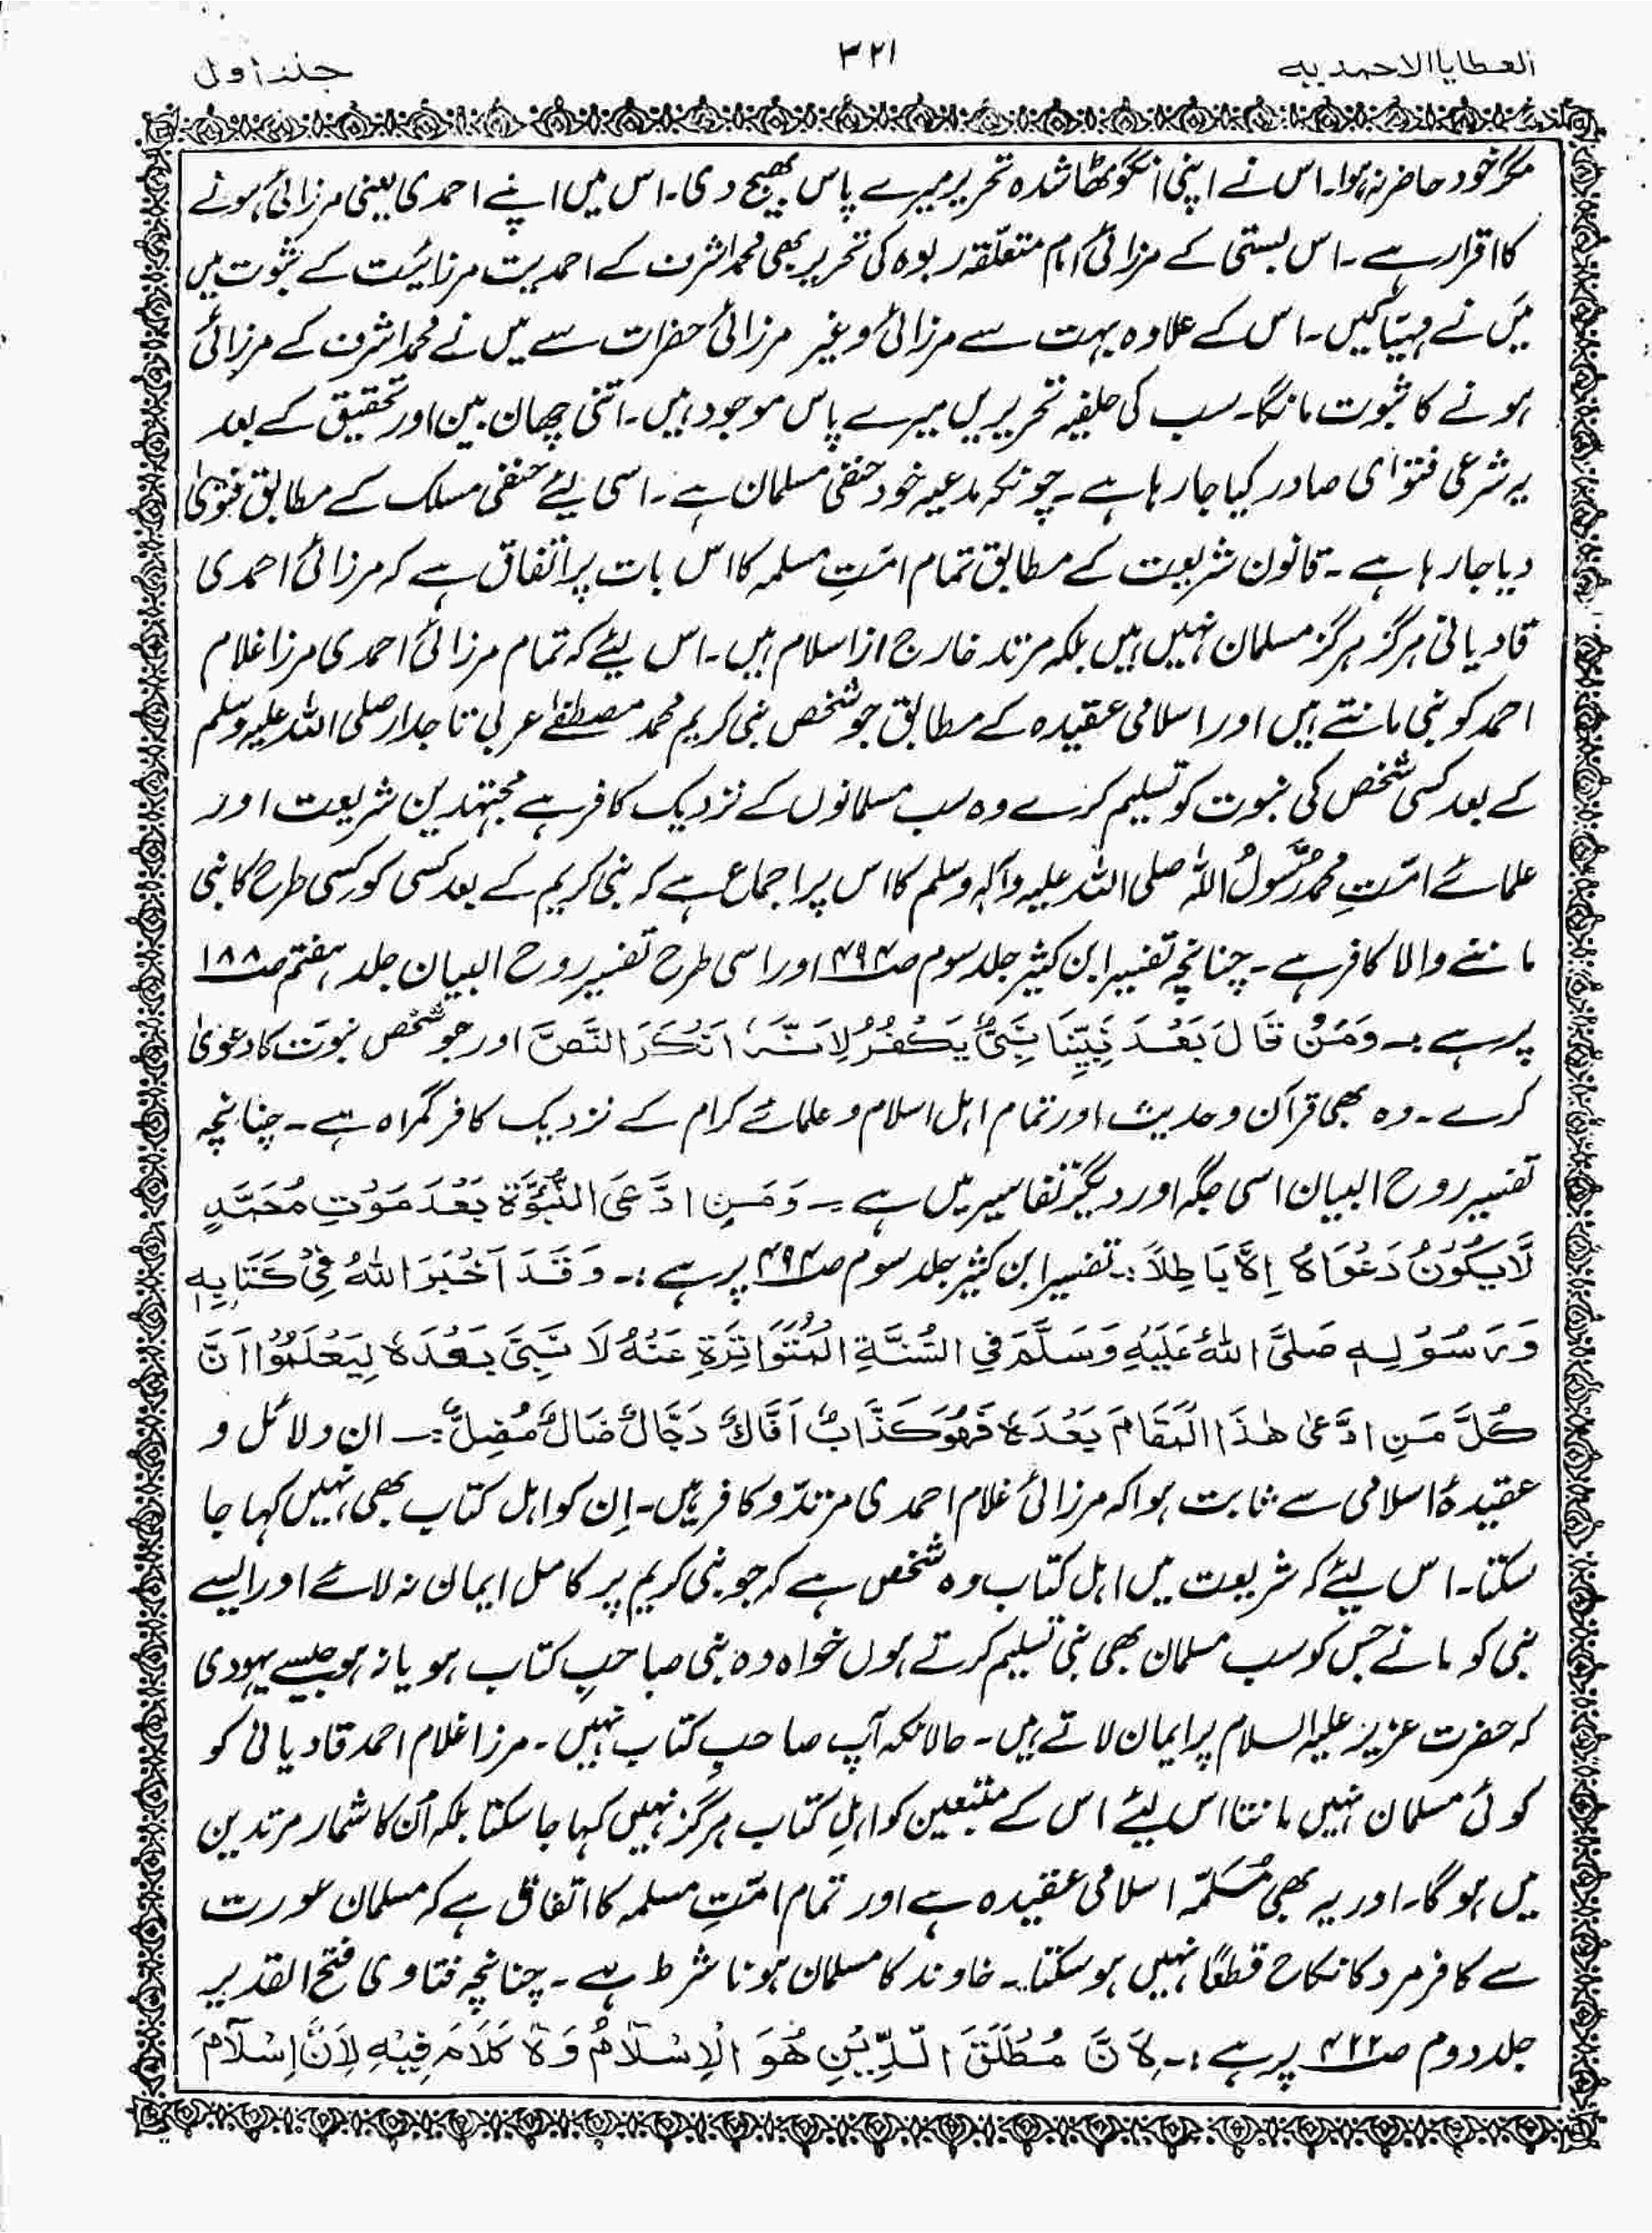 العطایا الاحمدیہ
۳۲۱
جلد اول
مگر خود حاضر نہ ہوا۔ اس نے اپنی انگوٹھا شدہ تحریر میرے پاس بھیج دی۔ اس میں اپنے احمدی یعنی مرزائی ہونے
کا اقرار ہے۔ اس بستی کے مرزائی امام متعلقہ ربوہ کی تحریر بھی محمد اشرف کے احمدیت مرزائیت کے ثبوت میں
میں نے مہیا کیں۔ اس کے علاوہ بہت سے مرزائی و غیر مرزائی حضرات سے میں نے محمد اشرف کے مرزائی
ہونے کا ثبوت مانگا۔ سب کی حلفیہ تحریریں میرے پاس موجود ہیں۔ اتنی چھان بین اور تحقیق کے بعد
یہ شرعی فتوای صادر کیا جا رہا ہے۔ چونکہ مدعیہ خود حنفی مسلمان ہے۔ اسی لیئے حنفی مسلک کے مطابق فتویٰ
دیا جا رہا ہے۔ قانون شریعت کے مطابق تمام امّتِ مسلمہ کا اس بات پر اتفاق ہے کہ مرزائی احمدی
قادیانی ہرگز ہرگز مسلمان نہیں ہیں بلکہ مرتد خارج از اسلام ہیں۔ اس لیئے کہ تمام مرزائی احمدی مرزا غلام
احمد کو نبی مانتے ہیں اور اسلامی عقیدہ کے مطابق جو شخص نبی کریم محمد مصطفےٰ عربی تاجدار صلی اللہ علیہ وسلم
کے بعد کسی شخص کی نبوت کو تسلیم کرے وہ سب مسلمانوں کے نزدیک کافر ہے مجتہدین شریعت اور
علمائے امّتِ محمد رَّسُولُ اللہ صلی اللہ علیہ وآلہ وسلم کا اس پر اجماع ہے کہ نبی کریم کے بعد کسی کو کسی طرح کا نبی
ماننے والا کافر ہے۔ چنانچہ تفسیر ابن کثیر جلد سوم صـ۴۹۴ اور اسی طرح تفسیر روح البیان جلد ہفتم صـ۱۸۸
پر ہے :۔ وَمَنْ قَالَ بَعْدَ نَبِیِّنَا نَبِیٌّ یَکْفُرُ لِاَنَّہٗ اَنْکَرَ النَّصَّ اور جو شخص نبوّت کا دعویٰ
کرے۔ وہ بھی قرآن و حدیث اور تمام اہل اسلام و علمائے کرام کے نزدیک کافر گمراہ ہے۔ چنانچہ
تفسیر روح البیان اسی جگہ اور دیگر تفاسیر میں ہے ۔ وَمَنِ ادَّعَی النُّبُوَّۃَ بَعْدَ مَوْتِ مُحَمَّدٍ
لَا یَکُوْنُ دَعْوَاہُ اِلَّا بَاطِلًا :۔ تفسیر ابن کثیر جلد سوم صـ۴۹۴ پر ہے :۔ وَقَدْ اَخْبَرَ اللہُ فِیْ کِتَابِہٖ
وَرَسُوْلِہٖ صَلَّی اللہُ عَلَیْہِ وَسَلَّمَ فِی السُّنَّۃِ الْمُتَوَاتِرَۃِ عَنْہُ لَا نَبِیَّ بَعْدَہٗ لِیَعْلَمُوْا اَنَّ
کُلَّ مَنِ ادَّعٰی ھٰذَا الْمَقَامَ بَعْدَہٗ فَھُوَ کَذَّابٌ اَفَّاکٌ دَجَّالٌ ضَالٌ مُضِلٌّ :۔ ان دلائل و
عقیدۂ اسلامی سے ثابت ہوا کہ مرزائی غلام احمدی مرتدّ و کافر ہیں۔ اِن کو اہل کتاب بھی نہیں کہا جا
سکتا۔ اس لیئے کہ شریعت میں اہل کتاب وہ شخص ہے کہ جو نبی کریم پر کامل ایمان نہ لائے اور ایسے
نبی کو مانے جس کو سب مسلمان بھی نبی تسلیم کرتے ہوں خواہ وہ نبی صاحبِ کتاب ہو یا نہ ہو جیسے یہودی
کہ حضرت عزیز علیہ السلام پر ایمان لاتے ہیں۔ حالانکہ آپ صاحبِ کتاب نہیں۔ مرزا غلام احمد قادیانی کو
کوئی مسلمان نہیں مانتا اس لیئے اس کے متبعین کو اہلِ کتاب ہرگز نہیں کہا جا سکتا بلکہ اُن کا شمار مرتدین
میں ہو گا۔ اور یہ بھی مُسَلَّمہ اسلامی عقیدہ ہے اور تمام امّتِ مسلمہ کا اتفاق ہے کہ مسلمان عورت
سے کافر مرد کا نکاح قطعًا نہیں ہو سکتا۔ خاوند کا مسلمان ہونا شرط ہے۔ چنانچہ فتاوی فتح القدیر
جلد دوم صـ۴۲۲ پر ہے :۔ لِاَنَّ مُطْلَقَ الدِّیْنِ ھُوَ الْاِسْلَامُ وَلَا کَلَامَ فِیْہِ لِاَنَّ اِسْلَامَ